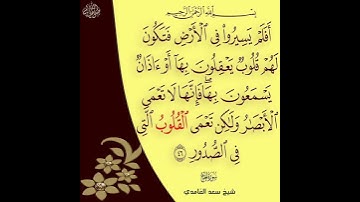 بِسْمِ اللَّهِ الرَّحْمَٰنِ الرَّحِيمِ
أَفَلَمْ يَسِيرُوا۟ فِى ٱلْأَرْضِ فَتَكُونَ
لَهُمْ قُلُوبٌ يَعْقِلُونَ بِهَآ أَوْ ءَاذَانٌ
يَسْمَعُونَ بِهَا ۖ فَإِنَّهَا لَا تَعْمَى
ٱلْأَبْصَٰرُ وَلَٰكِن تَعْمَى ٱلْقُلُوبُ ٱلَّتِى
فِى ٱلصُّدُورِ ٤٦
شيخ سعد الغامدي